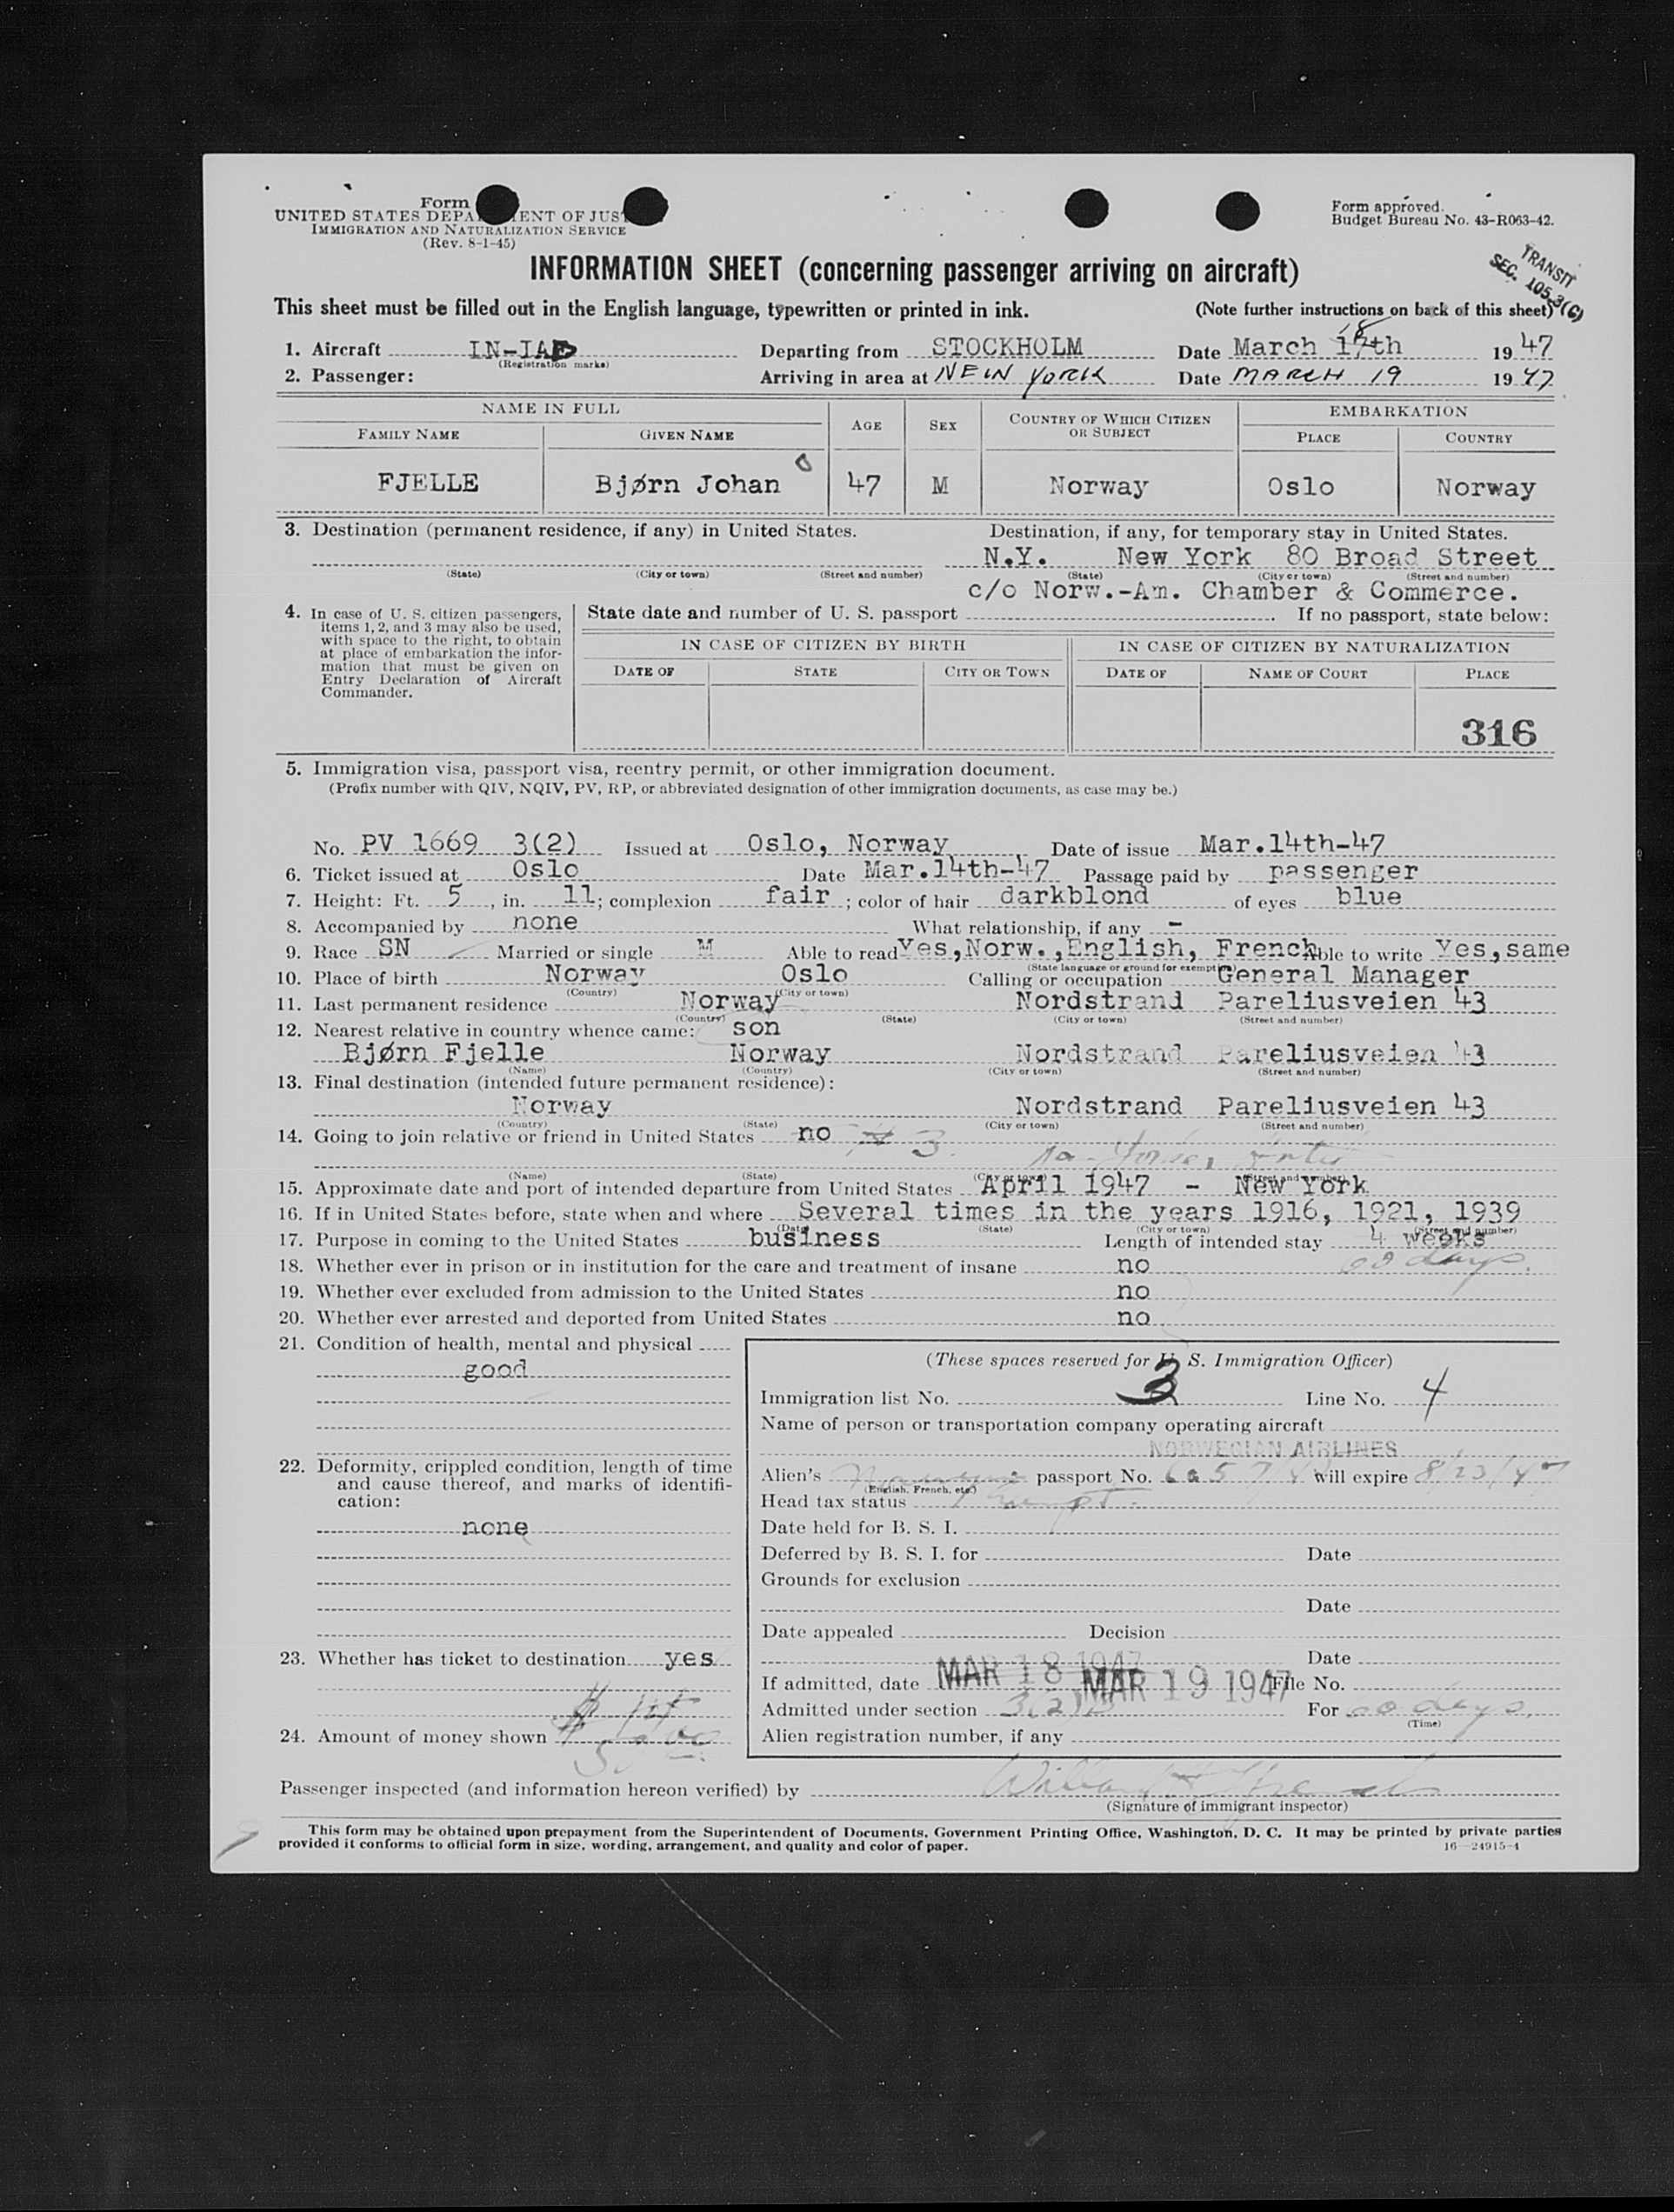 Form
UNITED STATES DEPA ENT OF JUS
IMMIGRATION AND NATURALIZATION SERVICE
(Rev. 8-1-45)
Form approved.
Budget Bureau No. 43-R063-42.
TRANSIT
SEC. 105.3(C)
INFORMATION SHEET (concerning passenger arriving on aircraft)
This sheet must be filled out in the English language, typewritten or printed in ink. (Note further instructions on back of this sheet)
18
1. Aircraft Departing from STOCKHOLM Date March 17th 1947
(Registration marks)
2. Passenger: Arriving in area at NEW YORK Date MARCH 19 1947
NAME IN FULL AGE SEX COUNTRY OF WHICH CITIZEN OR SUBJECT EMBARKATION
FAMILY NAME GIVEN NAME PLACE COUNTRY
FJELLE Bjørn Johan 47 M Norway Oslo Norway
3. Destination (permanent residence, if any) in United States. Destination, if any, for temporary stay in United States.
N.Y. New York 80 Broad Street
(State) (City or town) (Street and number) (State) (City or town) (Street and number)
c/o Norw.-Am. Chamber & Commerce.
4. In case of U. S. citizen passengers, items 1, 2, and 3 may also be used, with space to the right, to obtain at place of embarkation the information that must be given on Entry Declaration of Aircraft Commander.
State date and number of U. S. passport . If no passport, state below:
IN CASE OF CITIZEN BY BIRTH IN CASE OF CITIZEN BY NATURALIZATION
DATE OF STATE CITY OR TOWN DATE OF NAME OF COURT PLACE
316
5. Immigration visa, passport visa, reentry permit, or other immigration document.
(Prefix number with QIV, NQIV, PV, RP, or abbreviated designation of other immigration documents, as case may be.)
No. PV 1669 3(2) Issued at Oslo, Norway Date of issue Mar.14th-47
6. Ticket issued at Oslo Date Mar.14th-47 Passage paid by passenger
7. Height: Ft. 5, in. 11; complexion fair; color of hair darkblond of eyes blue
8. Accompanied by none What relationship, if any -
9. Race SN Married or single M Able to read Yes,Norw.,English, French Able to write Yes,same
(State language or ground for exemption)
10. Place of birth Norway Oslo Calling or occupation General Manager
(Country) (City or town)
11. Last permanent residence Norway Nordstrand Pareliusveien 43
(Country) (State) (City or town) (Street and number)
12. Nearest relative in country whence came: son
Bjørn Fjelle Norway Nordstrand Pareliusveien 43
(Name) (Country) (City or town) (Street and number)
13. Final destination (intended future permanent residence):
Norway Nordstrand Pareliusveien 43
(Country) (State) (City or town) (Street and number)
14. Going to join relative or friend in United States no
(Name) (State) (City or town) (Street and number)
15. Approximate date and port of intended departure from United States April 1947 - New York
16. If in United States before, state when and where Several times in the years 1916, 1921, 1939
(Date) (State) (City or town) (Street and number)
17. Purpose in coming to the United States business Length of intended stay 4 weeks
60 days.
18. Whether ever in prison or in institution for the care and treatment of insane no
19. Whether ever excluded from admission to the United States no
20. Whether ever arrested and deported from United States no
21. Condition of health, mental and physical
good
22. Deformity, crippled condition, length of time and cause thereof, and marks of identification:
none
23. Whether has ticket to destination yes
24. Amount of money shown
(These spaces reserved for U. S. Immigration Officer)
Immigration list No. 3 Line No. 4
Name of person or transportation company operating aircraft
NORWEGIAN AIRLINES
Alien's passport No. will expire 8/23/47
(English, French, etc.)
Head tax status
Date held for B. S. I.
Deferred by B. S. I. for Date
Grounds for exclusion
Date
Date appealed Decision
Date
If admitted, date MAR 18 1947 MAR 19 1947 File No.
Admitted under section 3(2) For 60 days.
(Time)
Alien registration number, if any
Passenger inspected (and information hereon verified) by
(Signature of immigrant inspector)
This form may be obtained upon prepayment from the Superintendent of Documents, Government Printing Office, Washington, D. C. It may be printed by private parties
provided it conforms to official form in size, wording, arrangement, and quality and color of paper.
16—24915-4